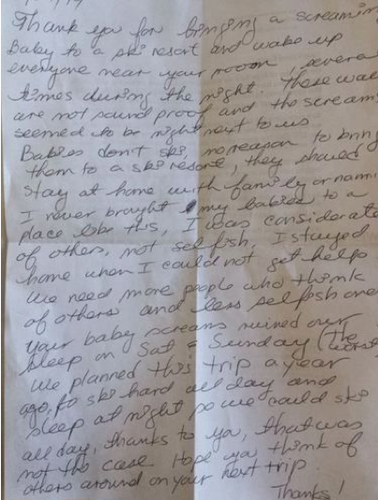 Thank you for bringing a screaming
Baby to a ski resort and wake up
everyone near your room, several
times during the night. These walls
are not sound proof and the screams
seemed to be right next to us
Babies don't ski, no reason to bring
them to a ski resort, they should
stay at home with family or nanni
I never brought my babies to a
place like this, I was considerate
of others, not selfish, I stayed
home when I could not get help
We need more people who think
of others and less selfish ones
your baby screams ruined our
sleep on Sat & Sunday (The worst)
We planned this trip a year
ago, to ski hard all day and
sleep at night so we could ski
all day, thanks to you, that was
not the case Hope you think of
others around on your next trip
Thanks!